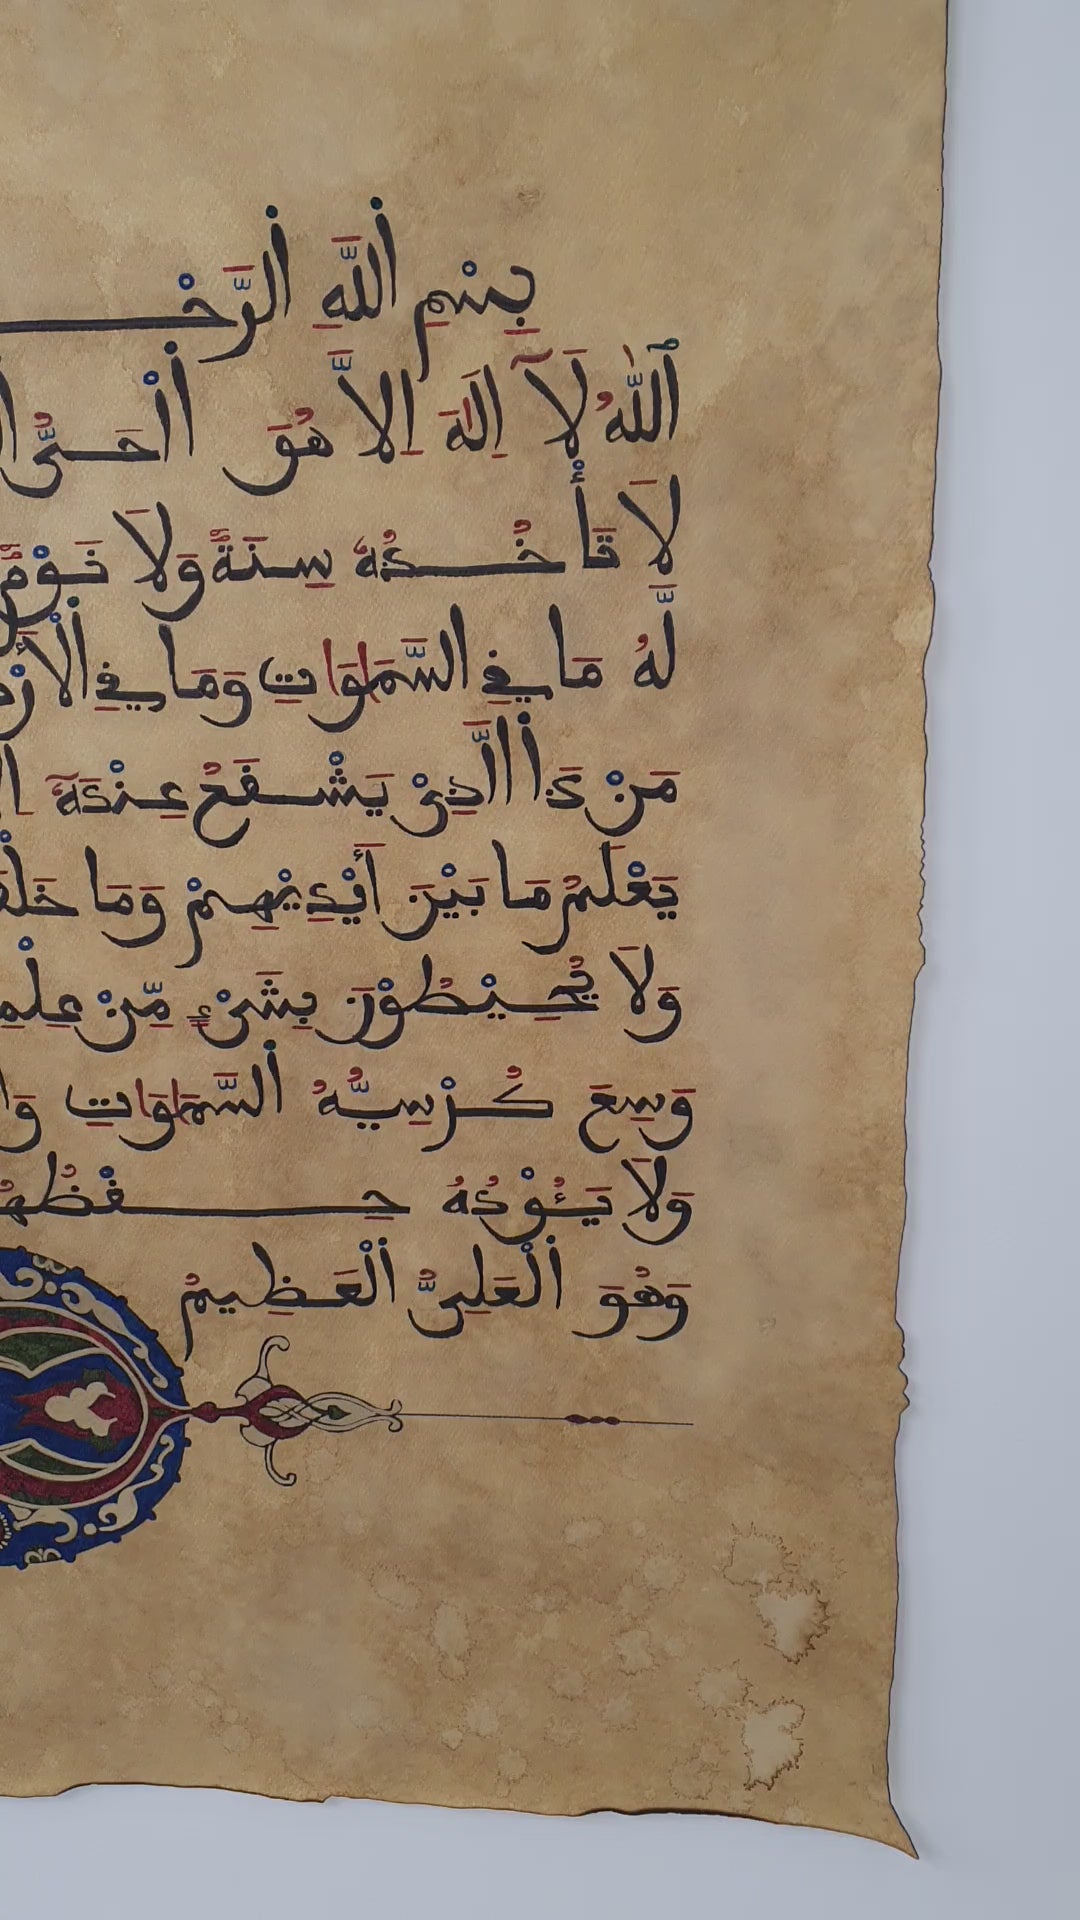 بِسْمِ اللَّهِ الرَّحْـ
اَللّٰهُ لَآ إِلَهَ إِلَّا هُوَ الْحَيُّ
لَا تَأْخُذُهُ سِنَةٌ وَلَا نَوْمٌ
لَّهُ مَا فِي السَّمَاوَاتِ وَمَا فِي الْأَرْ
مَنْ ذَا الَّذِيْ يَشْفَعُ عِنْدَهُ
يَعْلَمُ مَا بَيْنَ أَيْدِيْهِمْ وَمَا خَلْفَ
وَلَا يُحِيْطُوْنَ بِشَيْءٍ مِّنْ عِلْمِ
وَسِعَ كُرْسِيُّهُ السَّمَاوَاتِ وَا
وَلَا يَئُوْدُهُ حِفْظُهُ
وَهُوَ الْعَلِيُّ الْعَظِيمُ